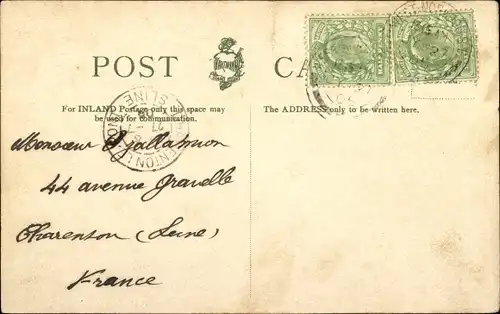 POST CA
For INLAND Postage only this space may
be used for communication.
The ADDRESS only to be written here.
Monsieur
44 avenue Gravelle
Charenton (Seine)
France